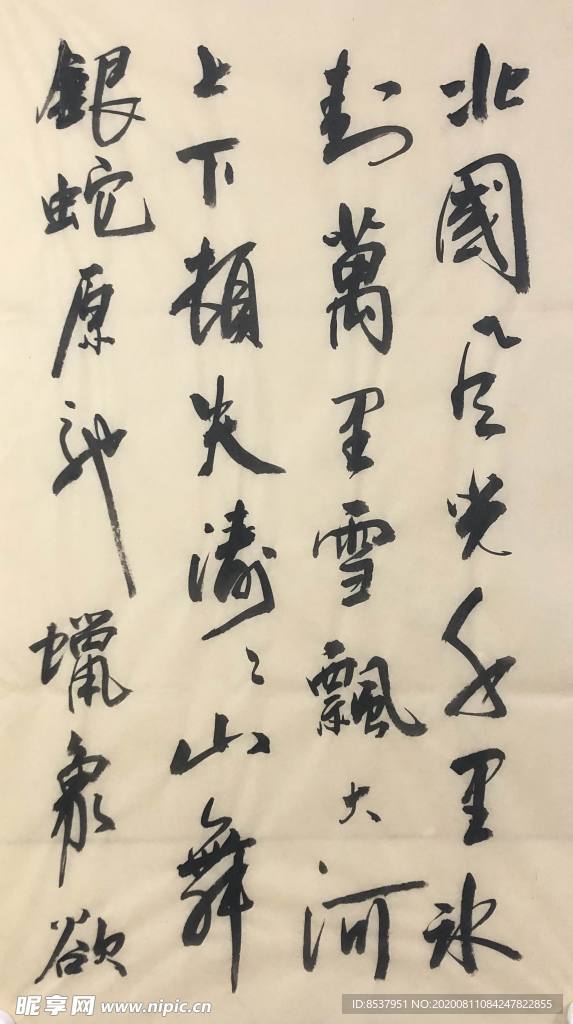 北國风光千里冰
封萬里雪飄大河
上下頓失濤〻山舞
銀蛇原馳蠟象欲
昵享网 www.nipic.cn
ID:8537951 NO:20200811084247822855